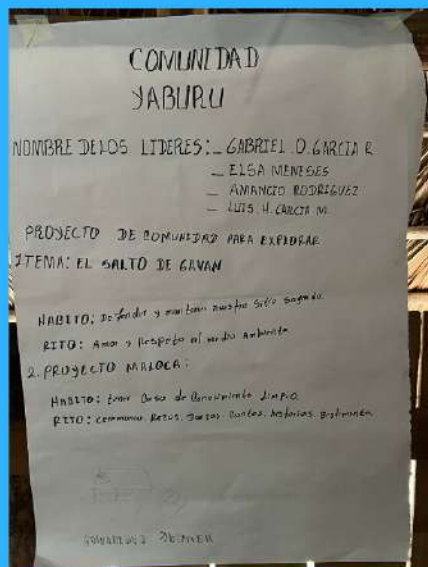 COMUNIDAD
YABURU
NOMBRE DE LOS LIDERES: - GABRIEL O. GARCIA R
- ELSA MENESES
- AMANCIO RODRIGUEZ
- LUIS. H. GARCIA M.
PROYECTO DE COMUNIDAD PARA EXPLORAR
1 TEMA: EL SALTO DE GAVAN
HABITO: Defender y mantener nuestro Sitio Sagrado.
RITO: Amor y Respeto al medio Ambiente
2. PROYECTO MALOCA:
HABITO: tener Casa de Conocimiento Limpia
RITO: ceremonia. Rezos. Danzas. Cantos. historias.